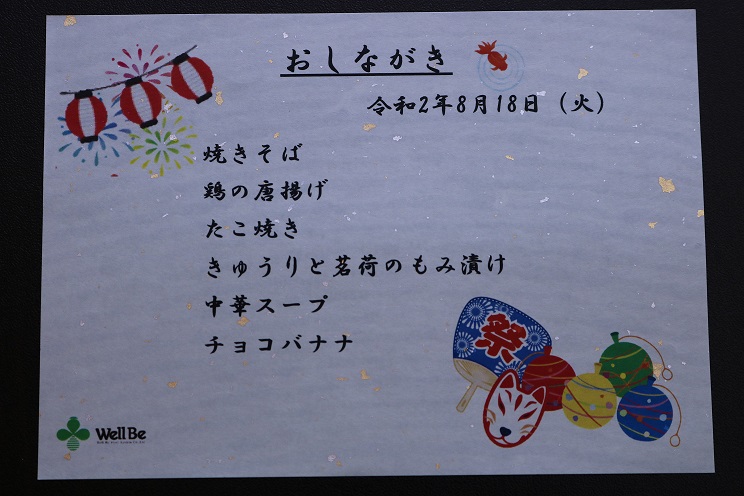 おしながき
令和2年8月18日（火）
焼きそば
鶏の唐揚げ
たこ焼き
きゅうりと茗荷のもみ漬け
中華スープ
チョコバナナ
祭
Well Be